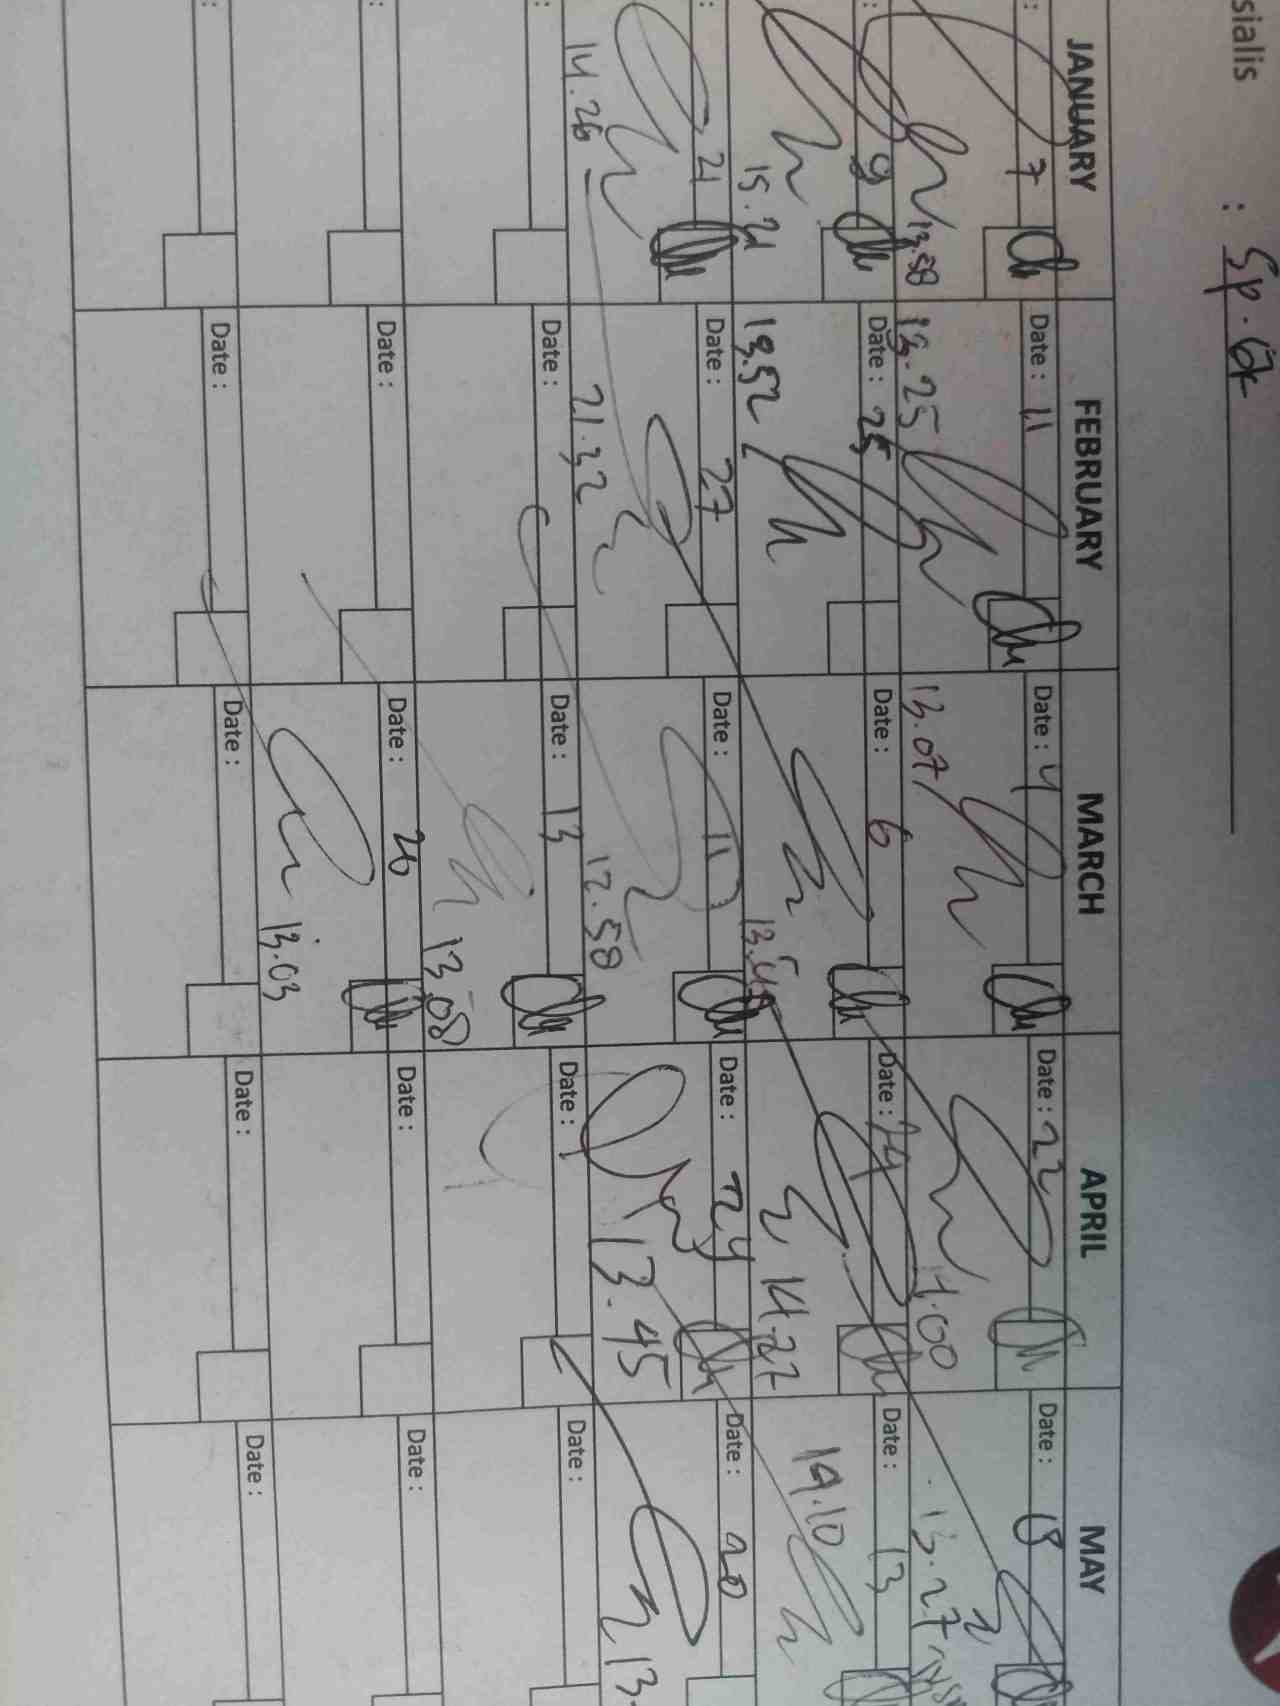 sialis : Sp. Ok
JANUARY FEBRUARY MARCH APRIL MAY
: 7 Date : 11 Date : 4 Date : 22 Date : 18
13.58 13.25 13.07 .00 13.27
: 9 Date : 25 Date : 6 Date : 24 Date : 13
15.21 13.52 13.4 14.27 14.10
: 21 Date : 27 Date : 11 Date : 24 Date : 20
14.26 21.32 12.58 13.45 13.
: Date : Date : 13 Date : Date :
13.08
: Date : Date : 26 Date : Date :
13.03
: Date : Date : Date : Date :